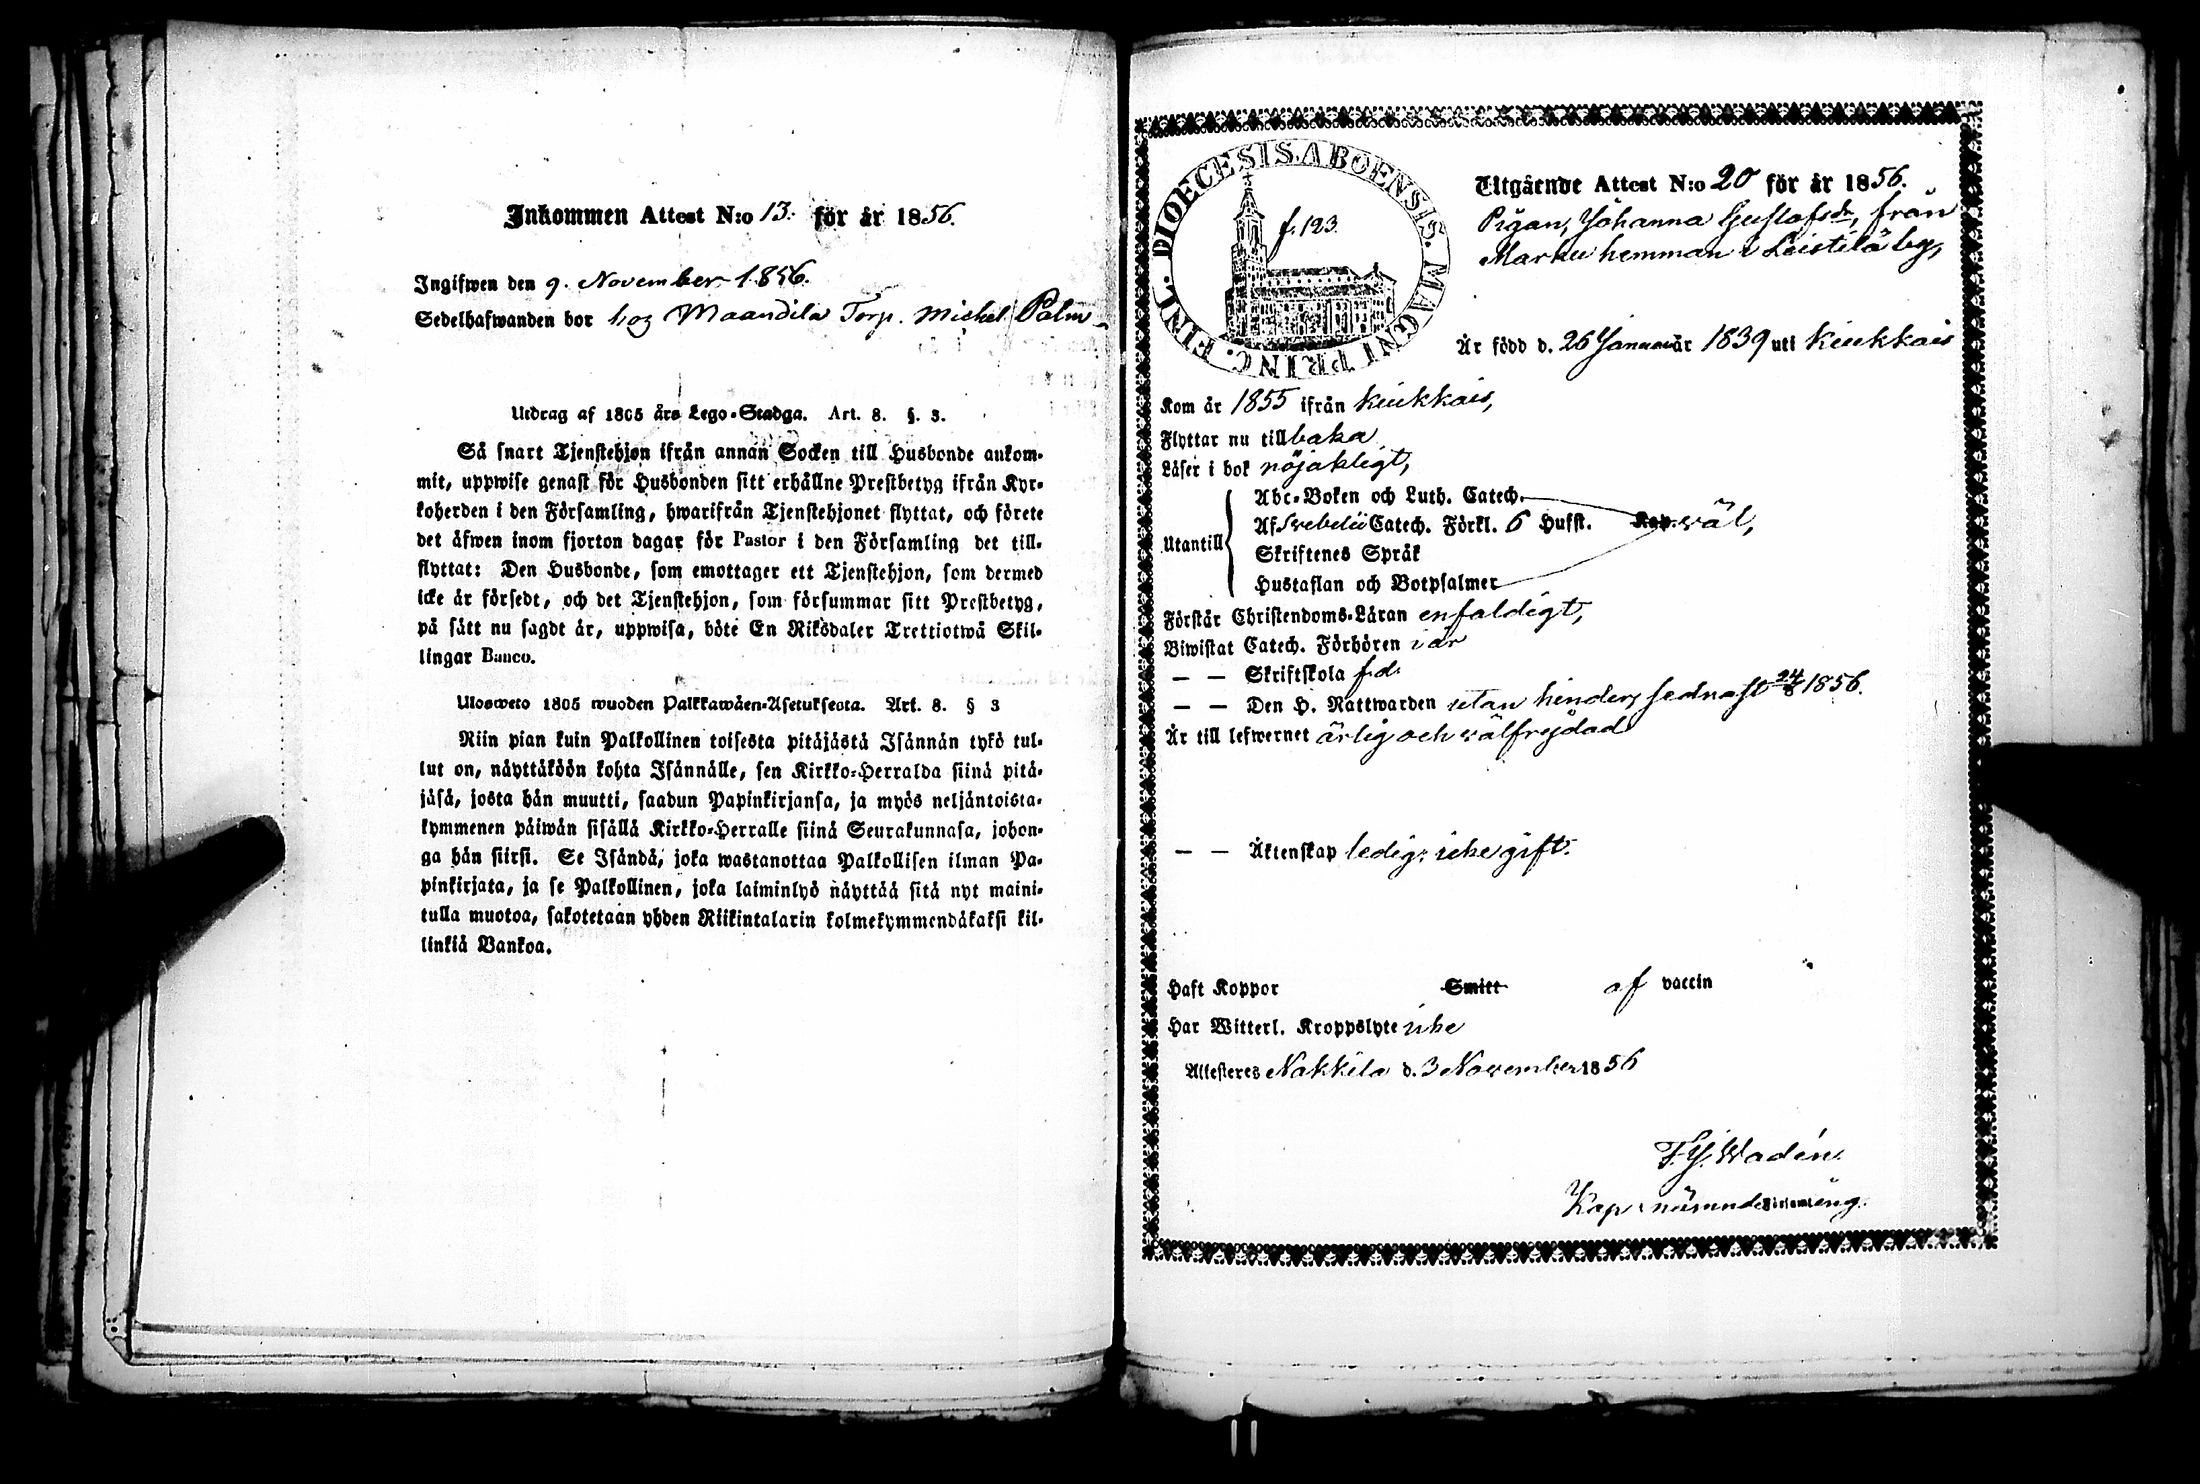 Inkommen Attest N:o 13. för år 1856.
Ingifwen den 9. November 1856.
Sedelhafwanden bor hos Maandila Torp. Michel Palm
Utdrag af 1805 års Lego-Stadga. Art. 8. §. 3.
Så snart Tjenstehjon ifrån annan Socken till Husbonde ankom-
mit, uppwise genast för Husbonden sitt erhållne Prestbetyg ifrån Kyr-
koherden i den Församling, hwarifrån Tjenstehjonet flyttat, och förete
det äfwen inom fjorton dagar för Pastor i den Församling det till-
flyttat: Den Husbonde, som emottager ett Tjenstehjon, som dermed
icke är försedt, och det Tjenstehjon, som försummar sitt Prestbetyg,
på sätt nu sagdt är, uppwisa, böte En Riksdaler Trettiotwå Skil-
lingar Banco.
Ulosweto 1805 wuoden Palkkawäen-Asetuksesta. Art. 8. § 3
Niin pian kuin Palkollinen toisesta pitäjästä Isännän tykö tul-
lut on, näyttäköön kohta Isännälle, sen Kirkko-Herralda siinä pitä-
jäsä, josta hän muutti, saadun Papinkirjansa, ja myös neljäntoista-
kymmenen päiwän sisällä Kirkko-Herralle siinä Seurakunnasa, johon-
ga hän siirsi. Se Isändä, joka wastanottaa Palkollisen ilman Pa-
pinkirjata, ja se Palkollinen, joka laiminlyö näyttää sitä nyt maini-
tulla muotoa, sakotetaan yhden Riikintalarin kolmekymmendäkaksi kil-
linkiä Bankoa.
DIOECESIS. ABOENSIS. MAGNI PRINC. FINL.
f. 123.
Utgående Attest N:o 20 för år 1856.
Pigan, Johanna Gustafsdr, från
Marku hemman i Leistilä by,
Är född d. 26 Januari är 1839 uti Kiukkais
Kom år 1855 ifrån Kiukkais,
Flyttar nu tillbaka
Läser i bok nöjakligt,
Utantill
Abc-Boken och Luth. Catech.
Af Svebelii Catech. Förkl. 6 Hufst. Kap. wäl,
Skriftenes Språk
Hustaflan och Botpsalmer
Förstår Christendoms-Läran enfaldigt,
Biwistat Catech. Förhören i år
— — Skriftskola f.d.
— — Den H. Nattwarden utan hinder, sednast 24/8 1856.
Är till lefwernet ärlig och wälfrejdad
— — Äktenskap ledig; icke gift.
Haft Koppor Smitt af vaccin
Har Witterl. Kroppslyte icke
Attesteres Nakkila d. 3 November 1856
F. J. Wadén.
Kap. i nämnde Församling.